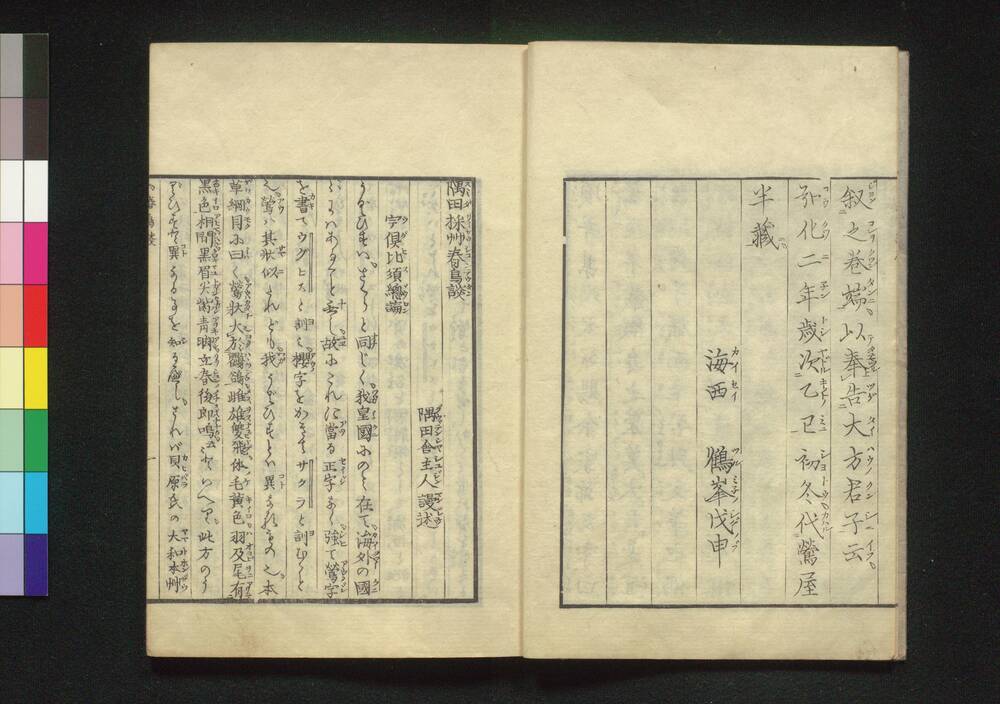 叙之巻端以奉告大方君子云
弘化二年歳次乙巳初冬代鶯屋
半蔵
海西　鶴峯戊申
隅田採艸春鳥談
隅田舎主人謾述
宇倶比須總論
うぐひすハさくらと同じく我皇國にのミ在て海外の國
にハあること无し故にこれに當る正字なく強て鶯字
を書てウグヒスと訓ミ櫻字をかきてサクラと訓むこと
鶯ハ其状似たれども我うぐひすとハ異なるもの也本
草綱目に曰く鶯状大於鸜鵒雌雄雙飛体毛黄色羽及尾有
黒色相間黒眉尖觜青脚立春後即鳴
此方のう
ぐひすと異なることを知るべしされバ貝原氏の大和本艸